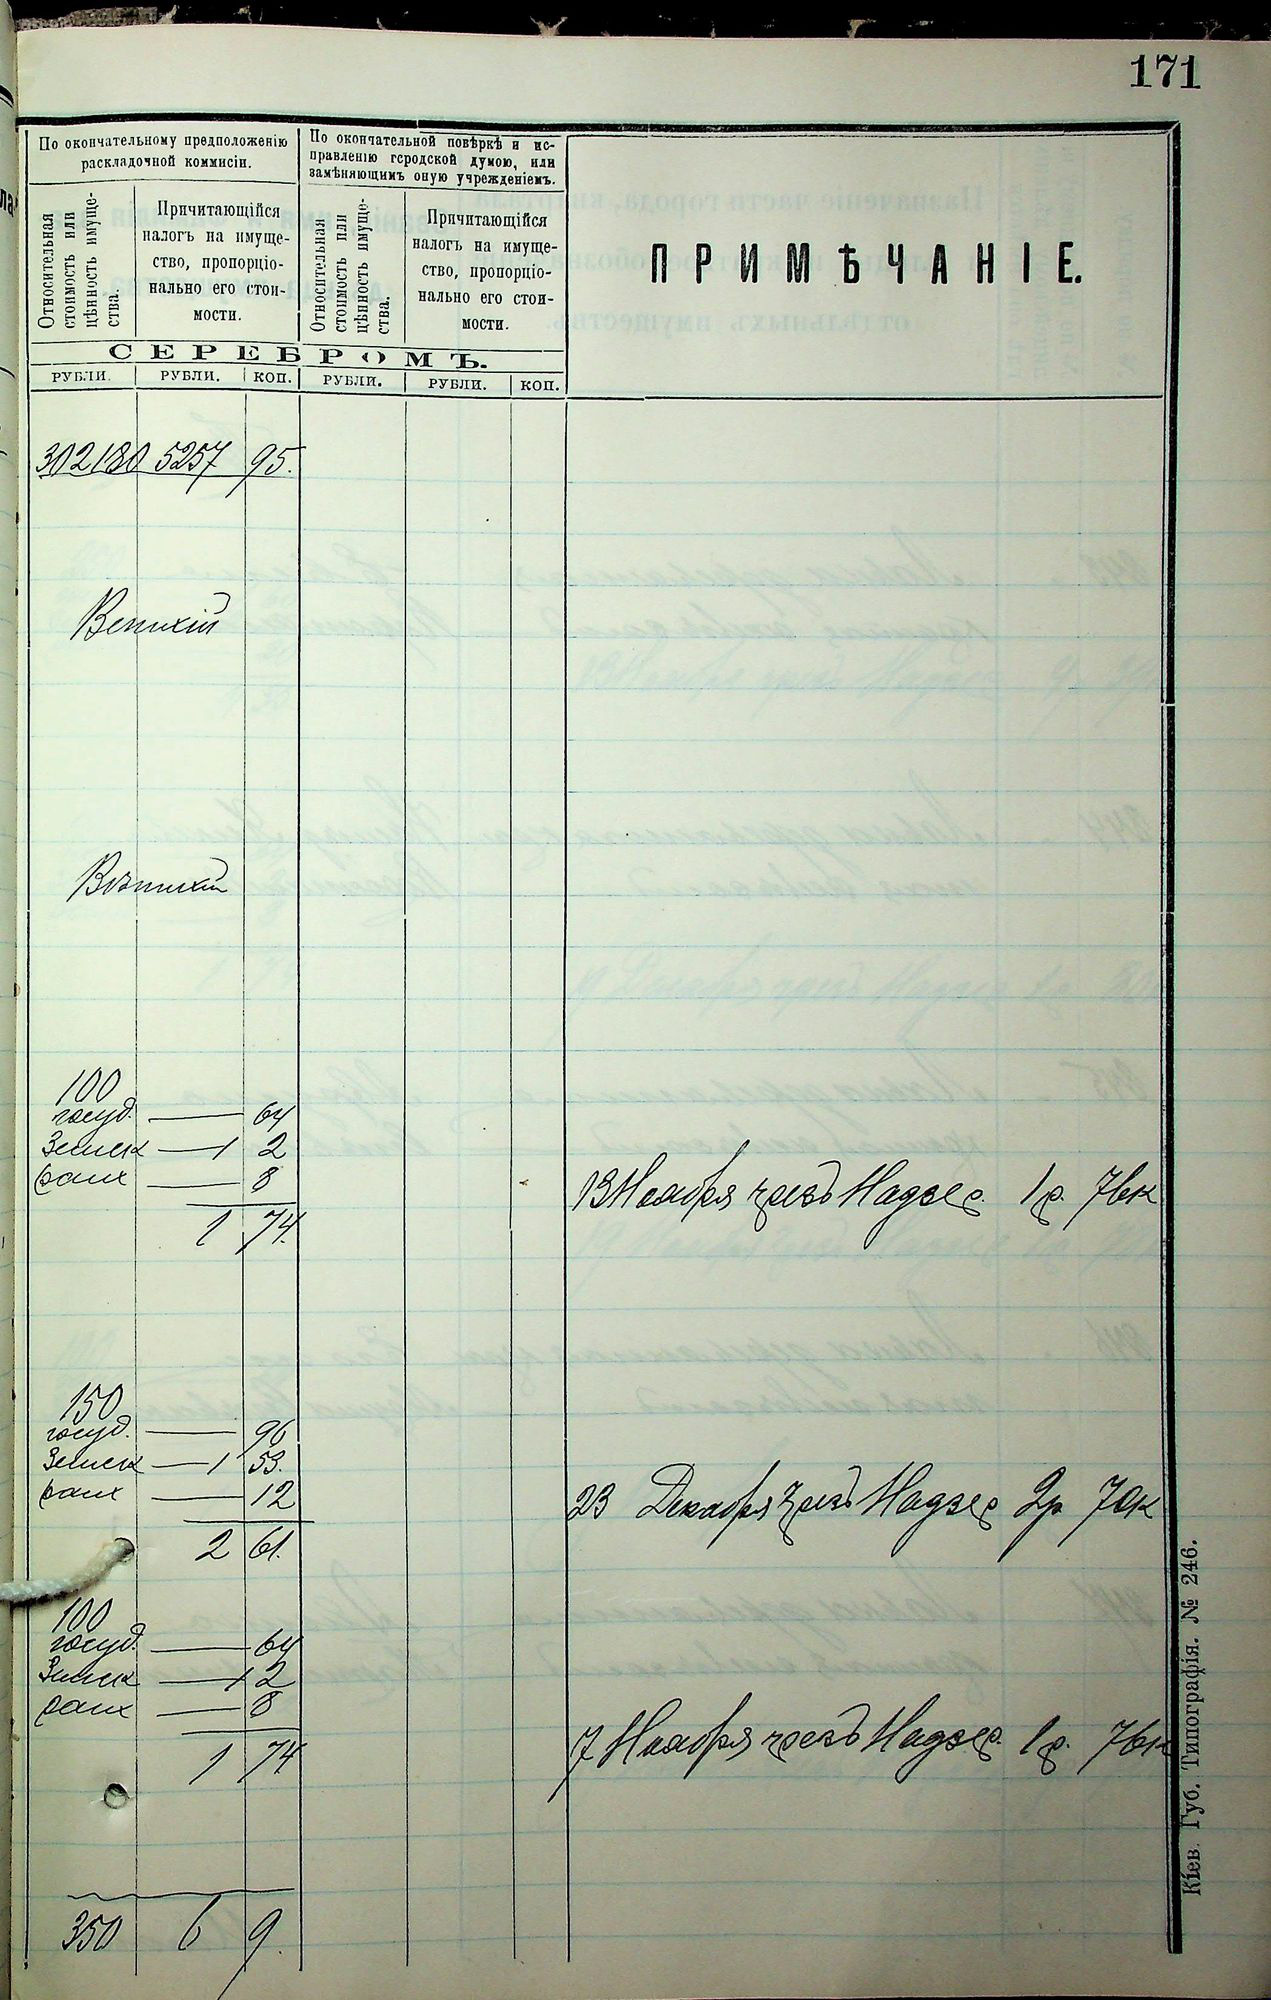 171
По окончательному предположенію
раскладочной коммисіи.
По окончательной повѣркѣ и ис-
правленію городской думою, или
замѣняющимъ оную учрежденіемъ.
Относительная
стоимость или
цѣнность имуще-
ства.
Причитающійся
налогъ на имуще-
ство, пропорціо-
нально его стои-
мости.
Относительная
стоимость или
цѣнность имуще-
ства.
Причитающійся
налогъ на имуще-
ство, пропорціо-
нально его стои-
мости.
ПРИМѢЧАНІЕ.
СЕРЕБРОМЪ.
РУБЛИ. РУБЛИ. КОП. РУБЛИ. РУБЛИ. КОП.
302180 5257 95.
100
госуд. — 64
Земск — 1 2
8
1 74.
13 Ноября чрезъ Надзер. 1р. 76к
150
госуд. — 96
Земск — 1 53.
12
2 61.
23 Декабря чрезъ Надзер 2р 70к
100
госуд. — 64
Земск — 1 2
8
1 74
7 Ноября чрезъ Надзер. 1р. 76к
350 6 9.
Кіев. Губ. Типографія. № 246.